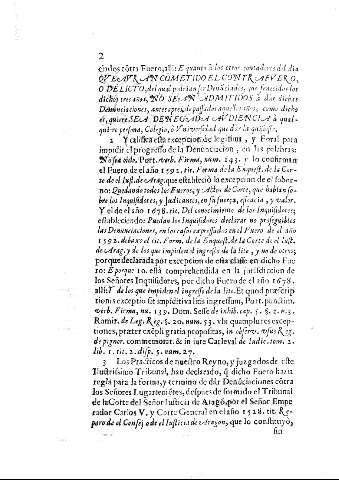 2
ciados cõtra Fuero, alli: E quanto à los otros contadores del dia
QUE AURAN COMETIDO EL CONTRAFUERO,
O DELICTO, del qual podrian ser Denũciados, que fenecidos los
dichos tres años, NO SEAN ADMITIDOS à dar dichas
Denunciaciones, antes
es, quiere SEA DENEGADA AUDIENCIA à qual-
quiere persona, Colegio, ò Universidad que dar la quisiesse.
2 Y califica esta excepcion de legitima, y Foral para
impidir el progresso de la Denunciacion, en las palabras:
No sea oìdo. Port. verb. Firma, num. 143. y lo confirmam
el Fuero de el año 1592. tit. Forma de la Enquest. de la Cor-
te de el Iust. de Arag. que estableciò la excepcion de el sobor-
no: Quedando todos los Fueros, y Actos de Corte, que hablan so-
bre los Inquisidores, y Judicantes, en su fuerça, eficacia, y valor.
Y el de el año 1678. tit. Del conocimiento de los Inquisidores;
estableciendo: Puedan los Inquisidores declarar no proseguibles
las Denunciaciones, en los casos expressados en el Fuero de el año
1592. debaxo el tit. Form. de la Enquest. de la Corte de el Iust.
de Arag. y de los que impiden el ingresso de la lite, y no de otros;
porque declarada por excepcion de essa classe en dicho Fue-
ro: E porque 10. està comprehendida en la jurisdicion de
los Señores Inquisidores, por dicho Fuero de el año 1678.
alli: Y de los que impiden el ingresso de la lite. Et quod præscrip-
tionis exceptio sit impiditiva litis ingressum, Port. punctim.
verb. Firma, nu. 139. Dom. Sesse de inhib. cap. 5. §. 2. n. 3.
Ramir. de Leg. Reg. §. 20. num. 53. vbi quamplures excep-
tiones, præter exẽpli gratia propositas, in observ. vsus Reg.
de pignor. commemorat. & in jure Carleval de Iudic. tom. 2.
lib. 1. tit. 2. disp. 5. num. 27.
3 Los Practicos de nuestro Reyno, y juzgados de este
Ilustrissimo Tribunal, han declarado, q̃ dicho Fuero haze
regla para la forma, y termino de dàr Denunciaciones cõtra
los Señores Lugartenientes, despues de formado el Tribunal
de la Corte del Señor Iusticia de Aragõ, por el Señor Empe-
rador Carlos V. y Corte General en el año 1528. tit. Re-
paro de el Consejo de el Iusticia de Aragon, que lo constituyò,
sin